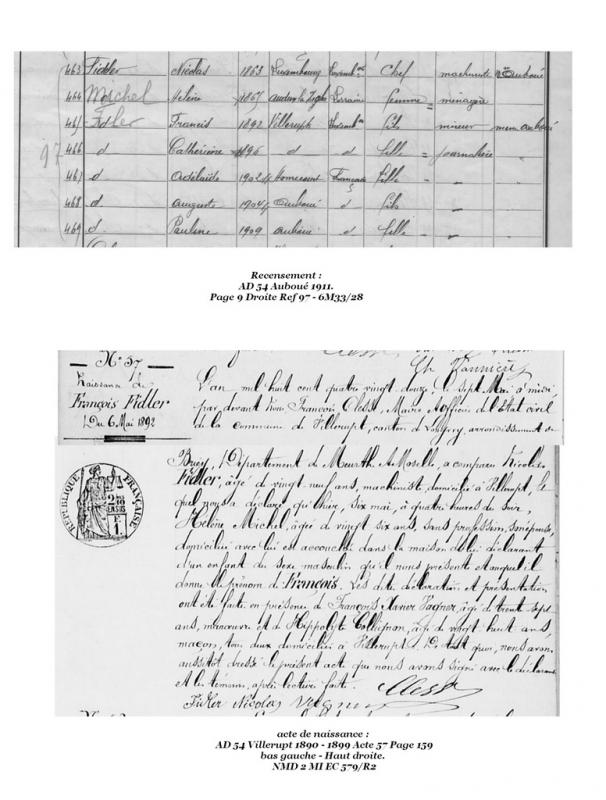 463 Fidler Nicolas 1863 Luxembourg Luxemb. Chef machiniste Auboué
464 Michel Hélène 1867 Audun le Tiche Lorraine femme = ménagère
465 Fidler Francis 1892 Villerupt Luxemb. fils mineur Auboué
97
466 d Cathérine 1896 d d fille = journalière
467 d Adélaïde 1902 Homécourt Française fille -
468 d Auguste 1904 Auboué d fils -
469 d. Pauline 1909 Auboué d fille -
Recensement :
AD 54 Auboué 1911.
Page 9 Droite Ref 97 - 6M33/28
N° 57
Naissance de
François Fidler
Du 6 Mai 1892
L'an mil huit cent quatre vingt douze, le sept Mai à midi
par devant Nous François Clesse, Maire & officier de l'Etat civil
de la commune de Villerupt, canton de Longwy, arrondissement de
Briey, Département de Meurthe & Moselle, a comparu Nicolas
Fidler, âgé de vingt neuf ans, machiniste, domicilié à Villerupt, le
quel nous a déclaré qu'hier, six mai, à quatre heures du soir,
Hélène Michel, âgée de vingt six ans, sans profession, son épouse,
domiciliée avec lui est accouchée dans la maison de lui déclarant
d'un enfant du sexe masculin qu'il nous présente et auquel il
donne le prénom de François. Les dites déclaration et présentation
ont été faites en présence de François Xavier Vagner, âgé de trente sept
ans, manœuvre et de Hippolyte Collignon, âgé de vingt huit ans,
maçon, tous deux domiciliés à Villerupt. De tout quoi, nous avons
aussitôt dressé le présent acte que nous avons signé avec le déclarant
et les témoins, après lecture faite.
Clesse
Fidler Nicolas Vagner
REPUBLIQUE FRANÇAISE
acte de naissance :
AD 54 Villerupt 1890 - 1899 Acte 57 Page 159
bas gauche - Haut droite.
NMD 2 MI EC 579/R2